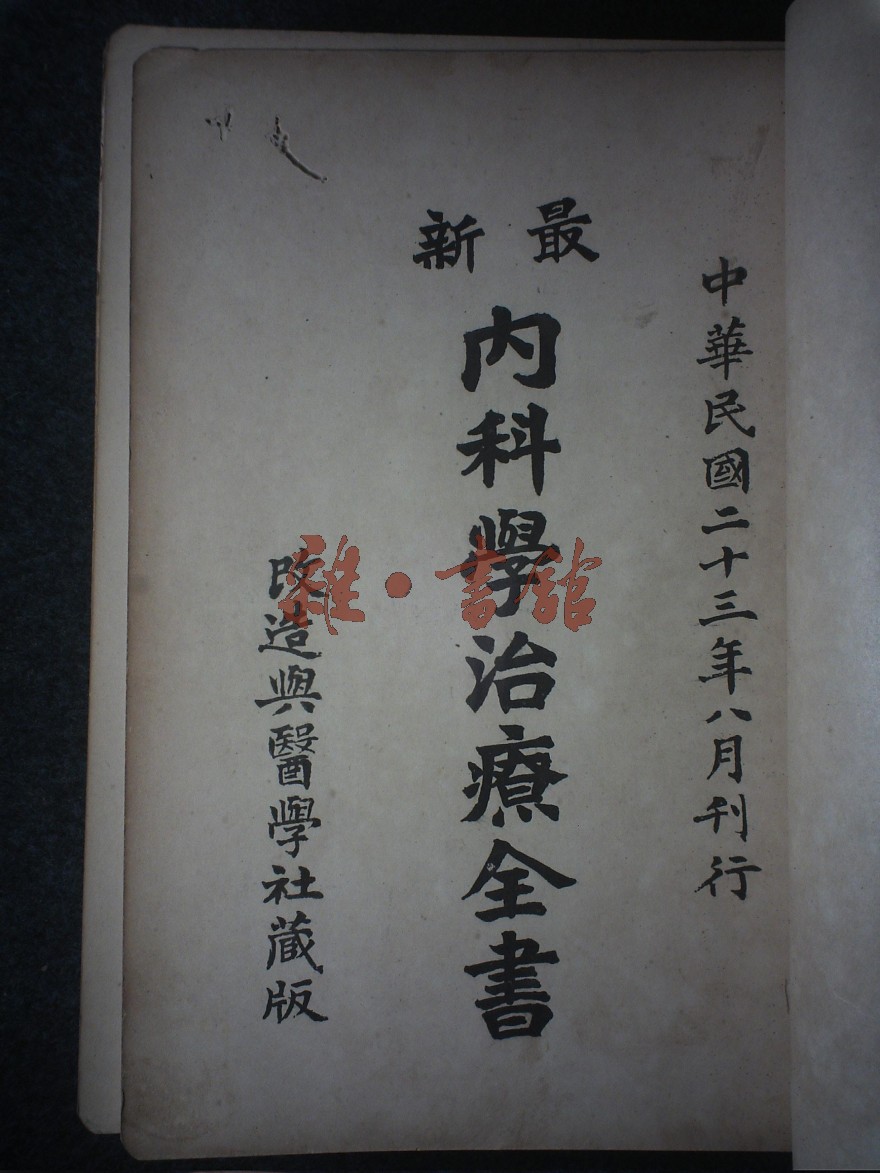 中華民國二十三年八月刊行
最新
內科學治療全書
改造與醫學社藏版
雜·書館